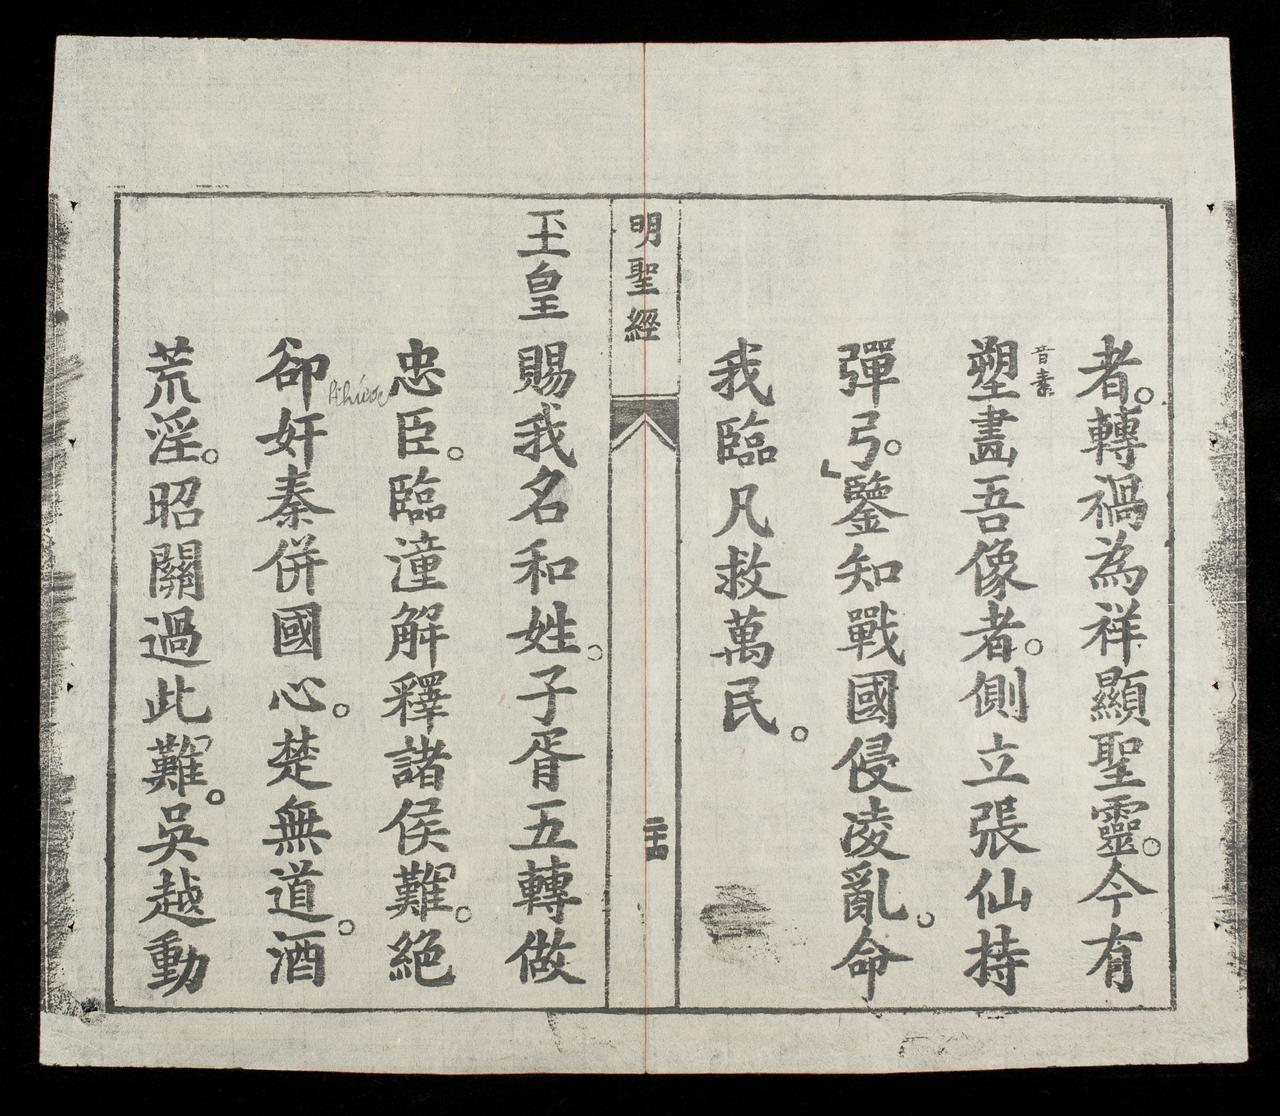 者。轉禍為祥顯聖靈。今有
塑音素畫吾像者。側立張仙持
彈弓。鑒知戰國侵凌亂。命
我臨凡救萬民。
明聖經
二十四
玉皇賜我名和姓。子胥五轉做
忠臣。臨潼解釋諸侯難。絕
卻奸秦併國心。楚無道。酒
荒淫。昭關過此難。吳越動